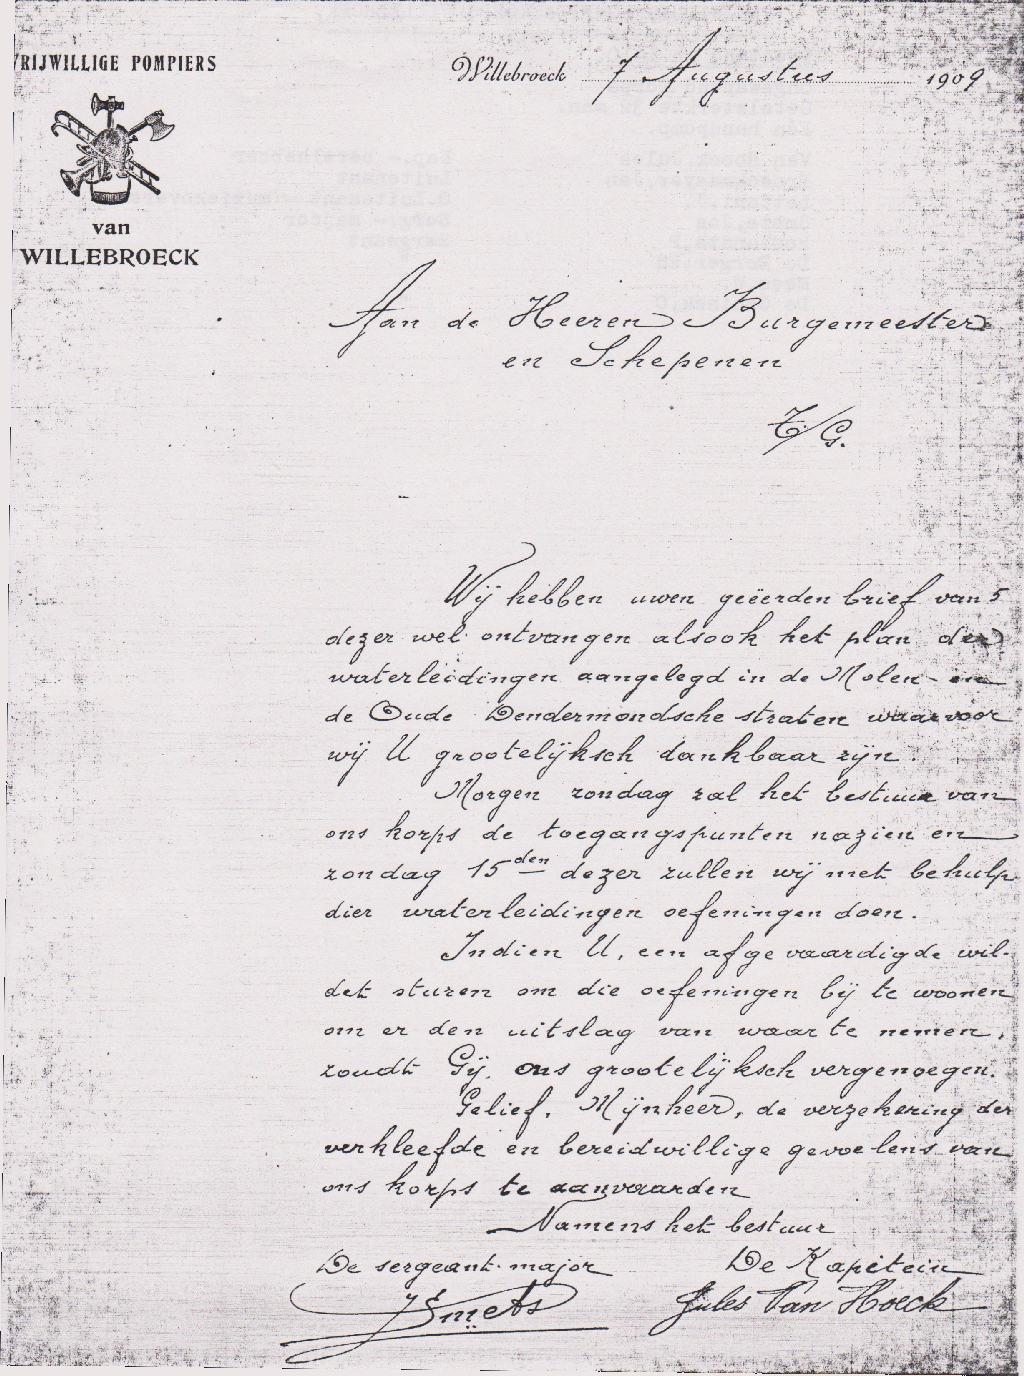 VRIJWILLIGE POMPIERS
van
WILLEBROECK
Willebroeck 7 Augustus 1909
Aan de Heeren Burgemeester
en Schepenen
T/G.
Wij hebben uwen geëerden brief van 5
dezer wel ontvangen alsook het plan der
waterleidingen aangelegd in de Molen- en
de Oude Dendermondsche straten waarvoor
wij U grootelijksch dankbaar zijn.
Morgen zondag zal het bestuur van
ons korps de toegangspunten nazien en
zondag 15den dezer zullen wij met behulp
dier waterleidingen oefeningen doen.
Indien U, een afgevaardigde wil-
det sturen om die oefeningen bij te woonen
om er den uitslag van waar te nemen,
zoudt Gij, ons grootelijksch vergenoegen.
Gelief, Mijnheer, de verzekering der
verkleefde en bereidwillige gevoelens van
ons korps te aanvaarden
Namens het bestuur
De sergeant-major De Kapitein
Smets Jules Van Hoeck